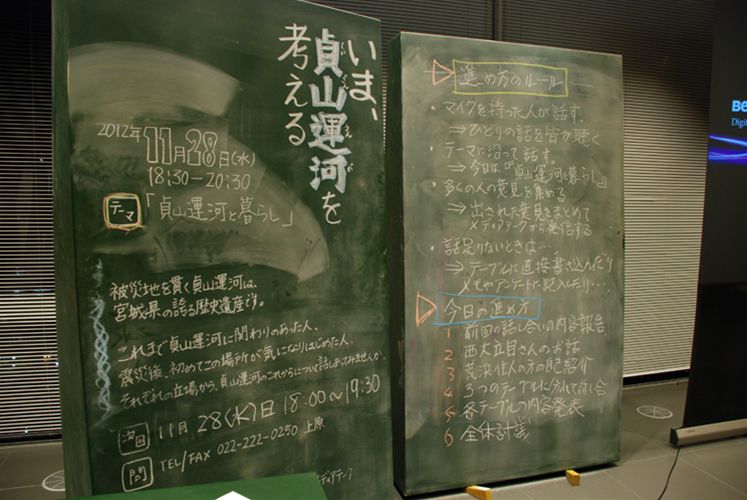 いま、
貞山運河を
考える
2012年
11月28日(水)
18:30-20:30
テーマ
「貞山運河と暮らし」
被災地を貫く貞山運河は、
宮城県の誇る歴史遺産です。
これまで貞山運河に関わりのあった人、
震災後、初めてこの場所が気になりはじめた人、
それぞれの立場から、貞山運河のこれからについて話しあってみませんか。
次回 11月28(水)日 18:00～19:30
問 TEL/FAX 022-222-0250 上原
メディアテーク
進め方のルール
・マイクを持った人が話す。
⇒ひとりの話を皆が聴く
・テーマに沿って話す。
⇒今日は『貞山運河と暮らし』
・多くの人の意見を集める
⇒出された意見をまとめて
メディアテークから発信する
・話足りないときは…
⇒テーブルに直接書き込んだり
メモやアンケートに記入したり…
今日の進め方
1 前回の話し合いの内容報告
2 西大立目さんのお話
3 荒浜住人の方の自己紹介
4 3つのテーブルに分れて話し合
5 各テーブルの内容発表
6 全体討議
Be
Digi